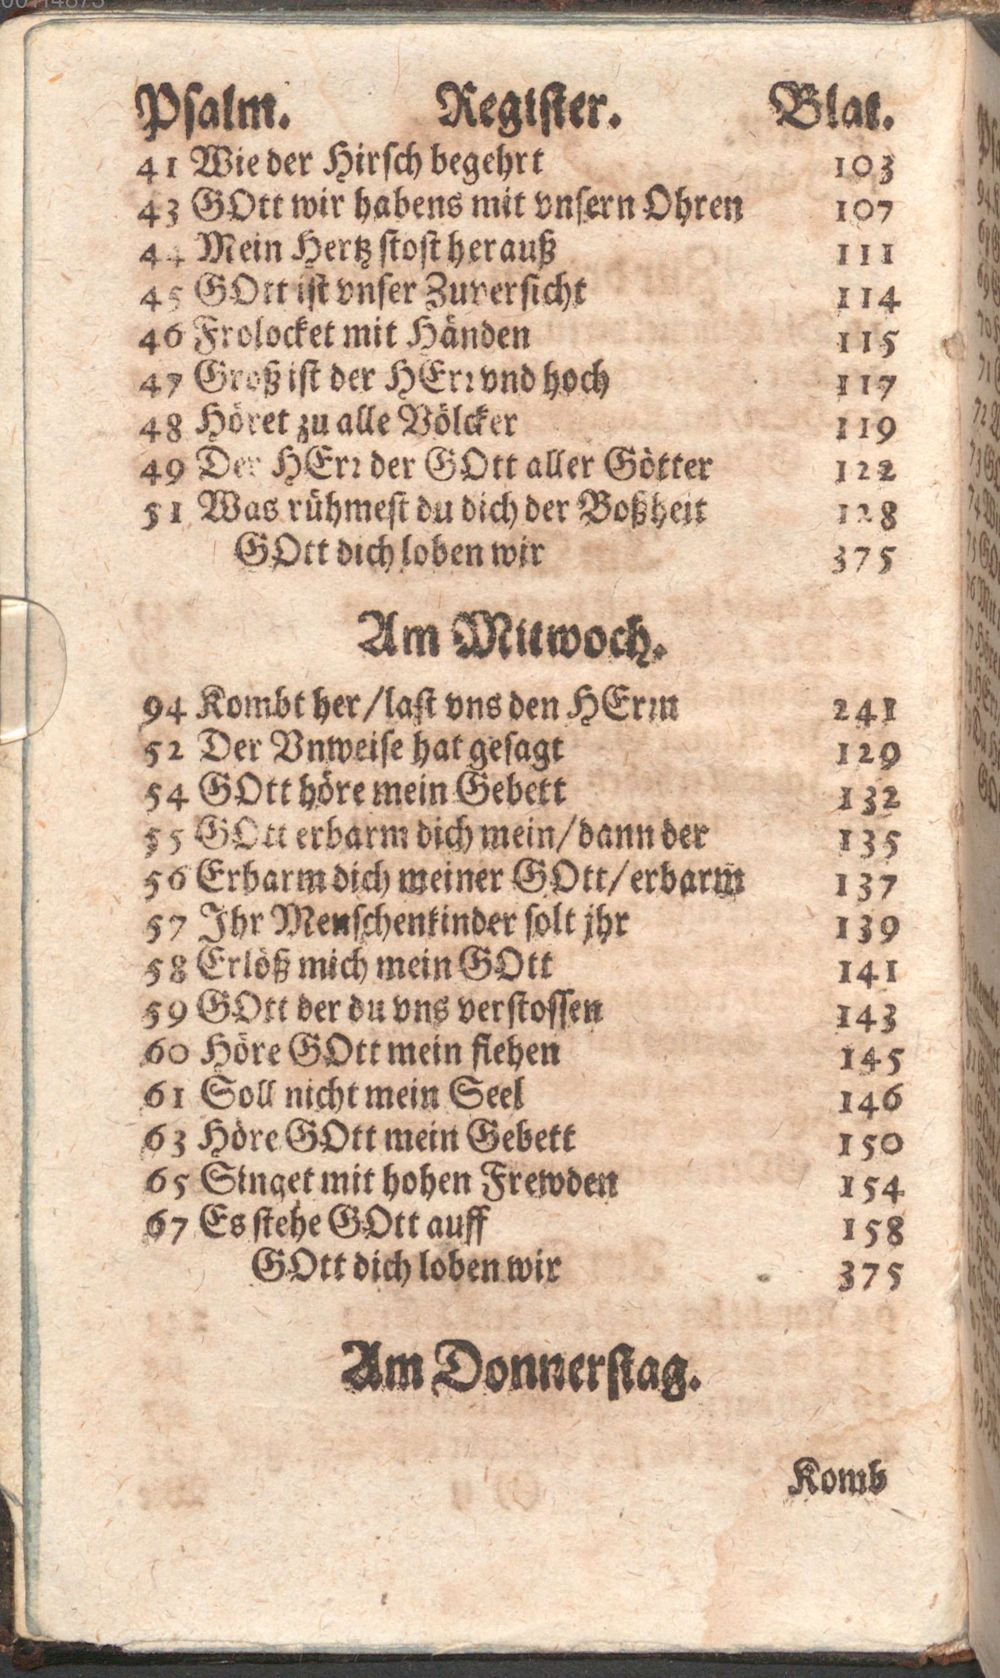 Psalm. Register. Blat.
41 Wie der Hirsch begehrt 103
43 GOtt wir habens mit vnsern Ohren 107
44 Mein Hertz stost herauß 111
45 GOtt ist vnser Zuversicht 114
46 Frolocket mit Händen 115
47 Groß ist der HErr vnd hoch 117
48 Höret zu alle Völcker 119
49 Der HErr der GOtt aller Götter 122
51 Was rühmest du dich der Boßheit 128
GOtt dich loben wir 375
Am Mitwoch.
94 Kombt her/last vns den HErrn 241
52 Der Vnweise hat gesagt 129
54 GOtt höre mein Gebett 132
55 GOtt erbarm dich mein/dann der 135
56 Erbarm dich meiner GOtt/erbarm 137
57 Ihr Menschenkinder solt jhr 139
58 Erlöß mich mein GOtt 141
59 GOtt der du vns verstossen 143
60 Höre GOtt mein flehen 145
61 Soll nicht mein Seel 146
63 Höre GOtt mein Gebett 150
65 Singet mit hohen Frewden 154
67 Es stehe GOtt auff 158
GOtt dich loben wir 375
Am Donnerstag.
Komb